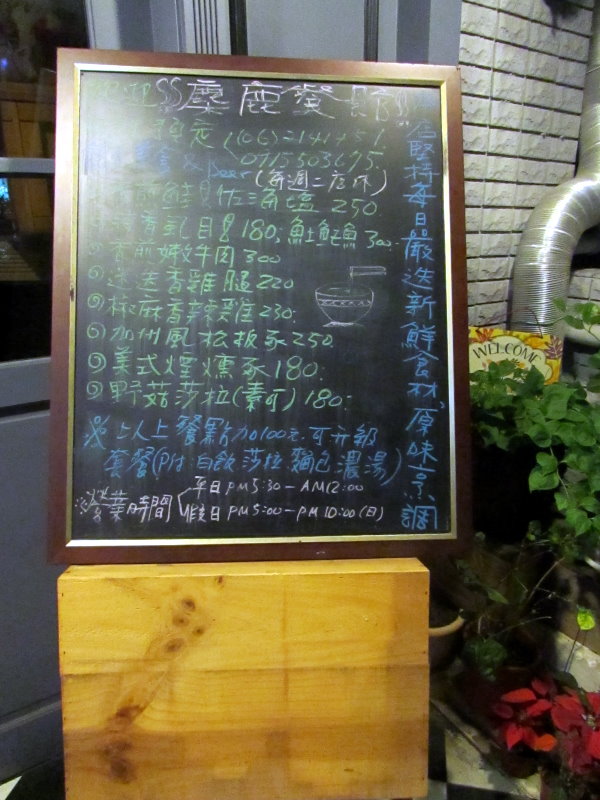 麋鹿餐廳
(06)214151
0915503675
(每週二店休)
煎鮭魚佐海鹽 250
香虱目魚180, 魠魠魚300
香煎嫩牛肉300
迷迭香雞腿220
椒麻香辣雞230
⑥加州風松板豕250
美式煙燻豕180
野菇莎拉(素可)180
※以上餐點加100元 可升級
套餐(附:白飯 莎拉 麵包 濃湯)
※營業時間
平日PM5:30-AM12:00
假日PM5:00-PM10:00(日)
堅持每日嚴迭新鮮食材"原味烹調
WELCOME